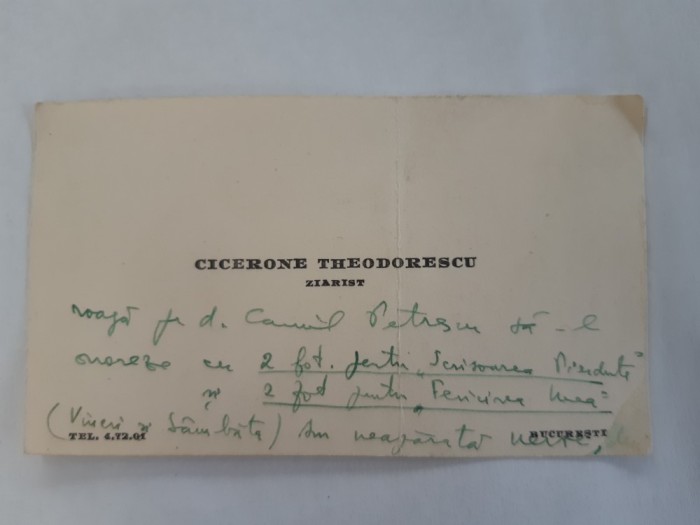 CICERONE THEODORESCU
ZIARIST
roagă pe d. Camil Petrescu să-l
onoreze cu 2 fot. pentru „Scrisoarea Pierdută"
și 2 fot pentru „Fericirea mea"
(Vineri și Sâmbăta) Am neapărată
TEL. 4.72.01 BUCUREȘTI